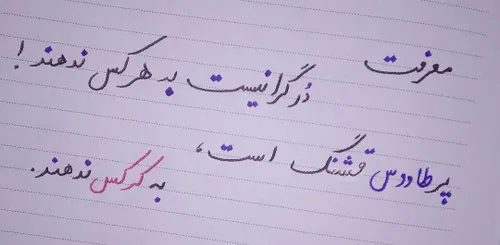 معرفت
دُر گرانیست به هر کس ندهند!
پر طاووس قشنگ است،
به کرکس ندهند.